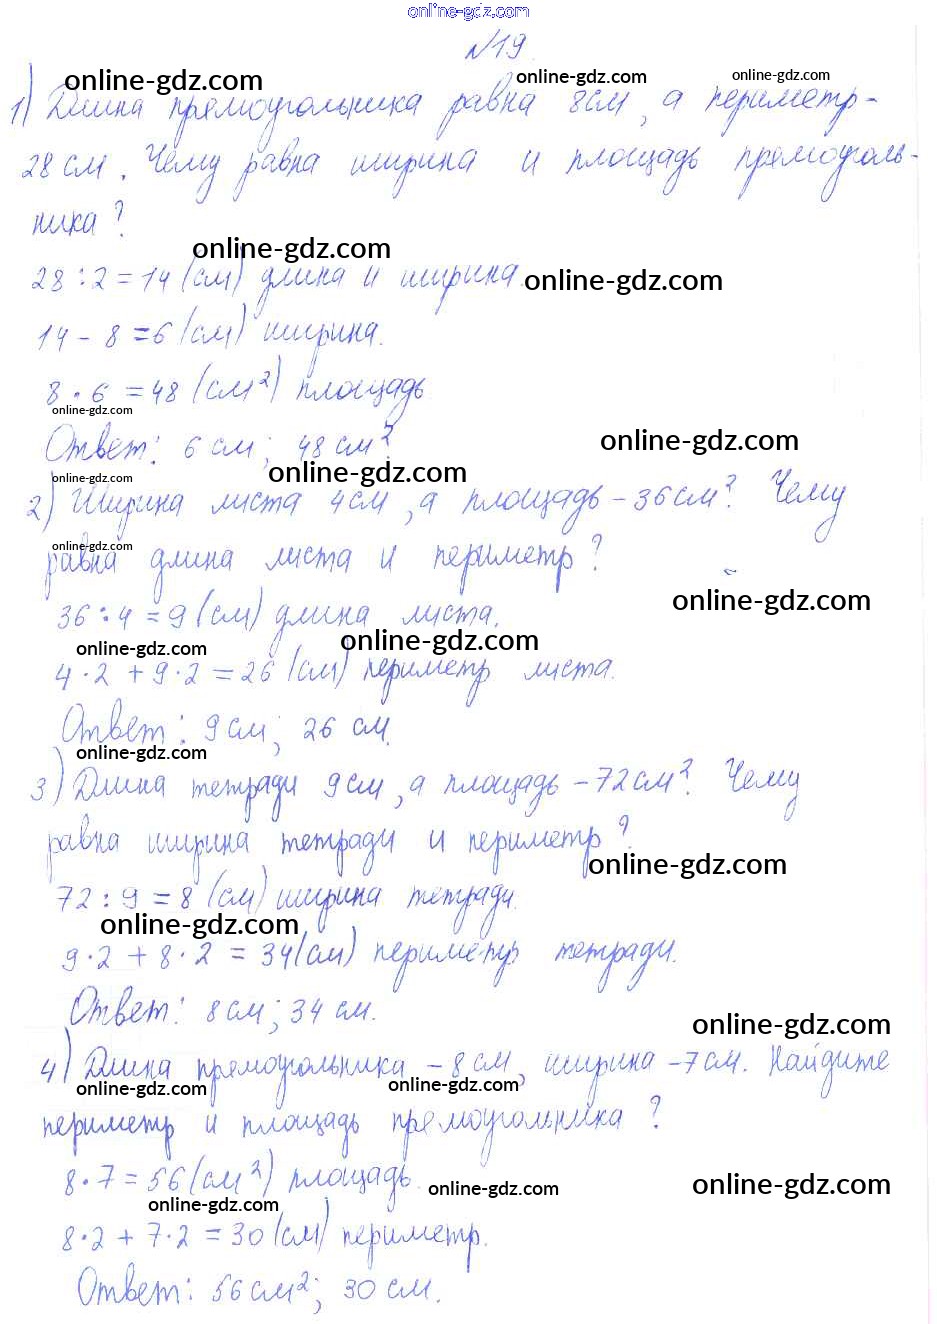 online-gdz.com
№19.
online-gdz.com online-gdz.com online-gdz.com
1) Длина прямоугольника равна 8см, а периметр-
28 см. Чему равна ширина и площадь прямоуголь-
ника?
online-gdz.com
28 : 2 = 14 (см) длина и ширина. online-gdz.com
14 - 8 = 6 (см) ширина.
8 · 6 = 48 (см²) площадь
online-gdz.com
Ответ: 6 см; 48 см² online-gdz.com
online-gdz.com online-gdz.com
2) Ширина листа 4см, а площадь - 36 см². Чему
online-gdz.com
равна длина листа и периметр?
online-gdz.com
36 : 4 = 9 (см) длина листа.
online-gdz.com online-gdz.com
4 · 2 + 9 · 2 = 26 (см) периметр листа.
Ответ: 9 см; 26 см.
online-gdz.com
3) Длина тетради 9 см, а площадь - 72 см². Чему
равна ширина тетради и периметр?
online-gdz.com
72 : 9 = 8 (см) ширина тетради.
online-gdz.com
9 · 2 + 8 · 2 = 34 (см) периметр тетради.
Ответ: 8 см; 34 см.
online-gdz.com
4) Длина прямоугольника - 8 см, ширина - 7 см. Найдите
online-gdz.com online-gdz.com
периметр и площадь прямоугольника?
8 · 7 = 56 (см²) площадь.
online-gdz.com online-gdz.com online-gdz.com
8 · 2 + 7 · 2 = 30 (см) периметр.
Ответ: 56 см²; 30 см.